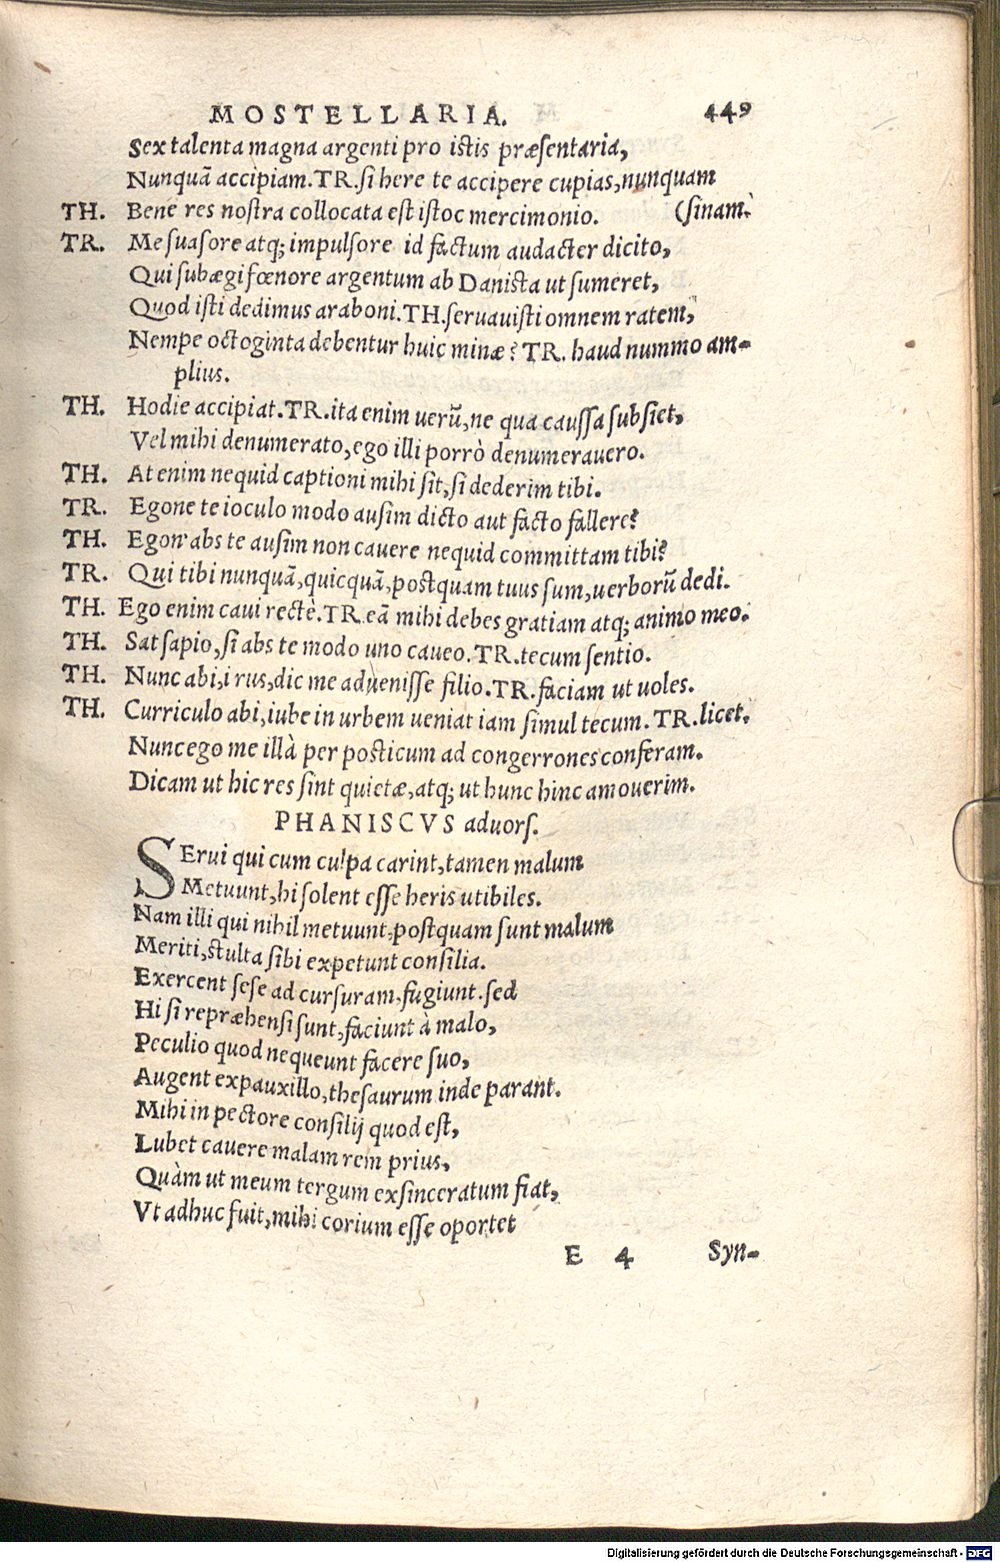 MOSTELLARIA. 449
Sex talenta magna argenti pro istis præsentaria,
Nunquã accipiam. TR. si here te accipere cupias, nunquam
TH. Bene res nostra collocata est istoc mercimonio. (sinam.
TR. Me suasore atq; impulsore id factum audacter dicito,
Qui subægi fœnore argentum ab Danista ut sumeret,
Quod isti dedimus araboni. TH. seruauisti omnem ratem,
Nempe octoginta debentur huic minæ? TR. haud nummo am-
plius.
TH. Hodie accipiat. TR. ita enim uerũ, ne qua caussa subsiet,
Vel mihi denumerato, ego illi porrò denumerauero.
TH. At enim nequid captioni mihi sit, si dederim tibi.
TR. Egone te ioculo modo ausim dicto aut facto fallere?
TH. Egon' abs te ausim non cauere nequid committam tibi?
TR. Qui tibi nunquã, quicquã, postquam tuus sum, uerborũ dedi.
TH. Ego enim caui rectè. TR. eã mihi debes gratiam atq; animo meo.
TH. Sat sapio, si abs te modo uno caueo. TR. tecum sentio.
TH. Nunc abi, i rus, dic me aduenisse filio. TR. faciam ut uoles.
TH. Curriculo abi, iube in urbem ueniat iam simul tecum. TR. licet.
Nunc ego me illà per posticum ad congerrones conferam.
Dicam ut hic res sint quietæ, atq; ut hunc hinc amouerim.
PHANISCVS aduors.
SErui qui cum culpa carint, tamen malum
Metuunt, hi solent esse heris utibiles.
Nam illi qui nihil metuunt, postquam sunt malum
Meriti, stulta sibi expetunt consilia.
Exercent sese ad cursuram, fugiunt. sed
Hi si repræhensi sunt, faciunt à malo,
Peculio quod nequeunt facere suo,
Augent expauxillo, thesaurum inde parant.
Mihi in pectore consilij quod est,
Lubet cauere malam rem prius,
Quàm ut meum tergum exsinceratum fiat,
Vt adhuc fuit, mihi corium esse oportet
E 4 Syn-
Digitalisierung gefördert durch die Deutsche Forschungsgemeinschaft - DFG